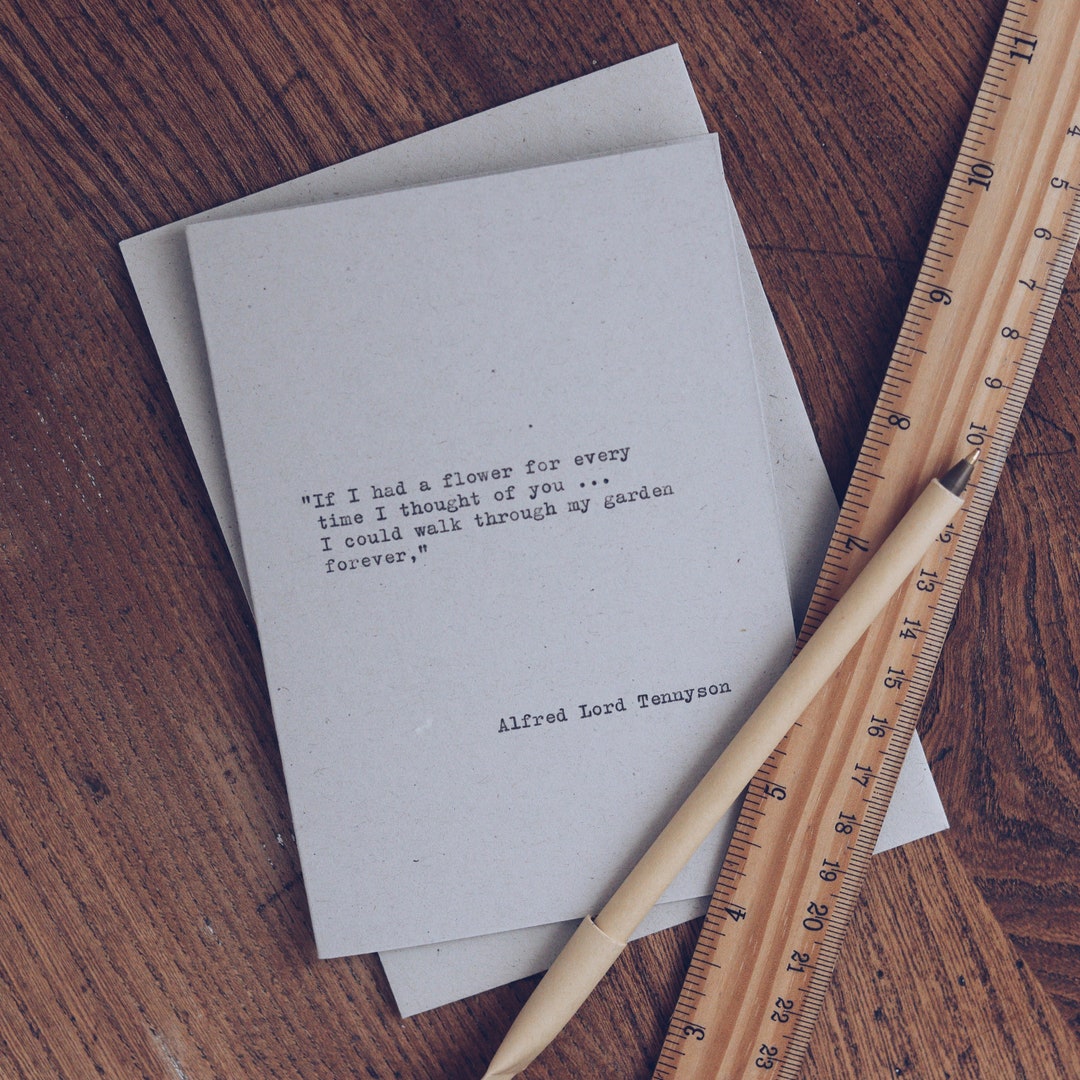 "If I had a flower for every
time I thought of you ...
I could walk through my garden
forever,"
Alfred Lord Tennyson
11
10
9
8
7
5
4
3
4
5
6
7
8
9
10
12
13
14
15
16
17
18
19
20
21
22
23